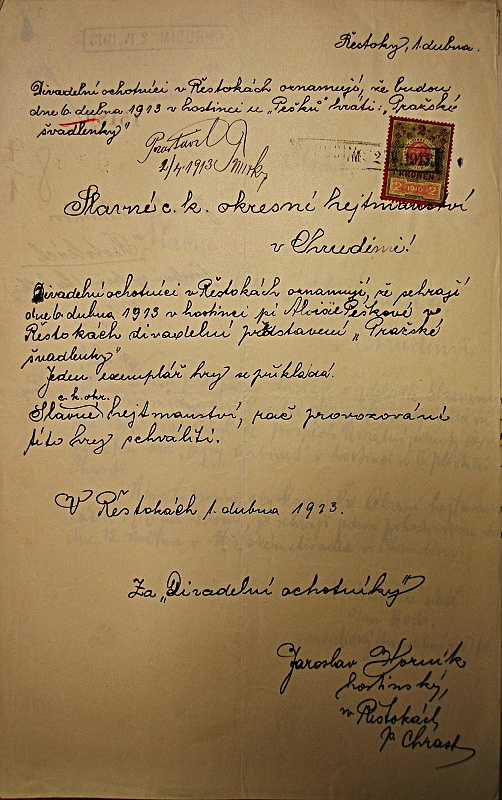 Řestoky, 1. dubna.
Divadelní ochotníci v Řestokách oznamují, že budou
dne 6. dubna 1913 v hostinci u „Pešků" hráti: „Pražské
švadlenky"
2/4 1913
2
1913
KRONEN
2 1910 2
Slavné c. k. okresní hejtmanství
v Chrudimi!
Divadelní ochotníci v Řestokách oznamují, že sehrají
dne 6. dubna 1913 v hostinci pí Aloisie Peškové v
Řestokách divadelní představení „Pražské
švadlenky"
Jeden exemplář hry se přikládá.
c. k. okr.
Slavné hejtmanství, rač provozování
této hry schváliti.
V Řestokách 1. dubna 1913.
Za „Divadelní ochotníky"
Jaroslav Horník
hostinský,
v Řestokách,
p. Chrast